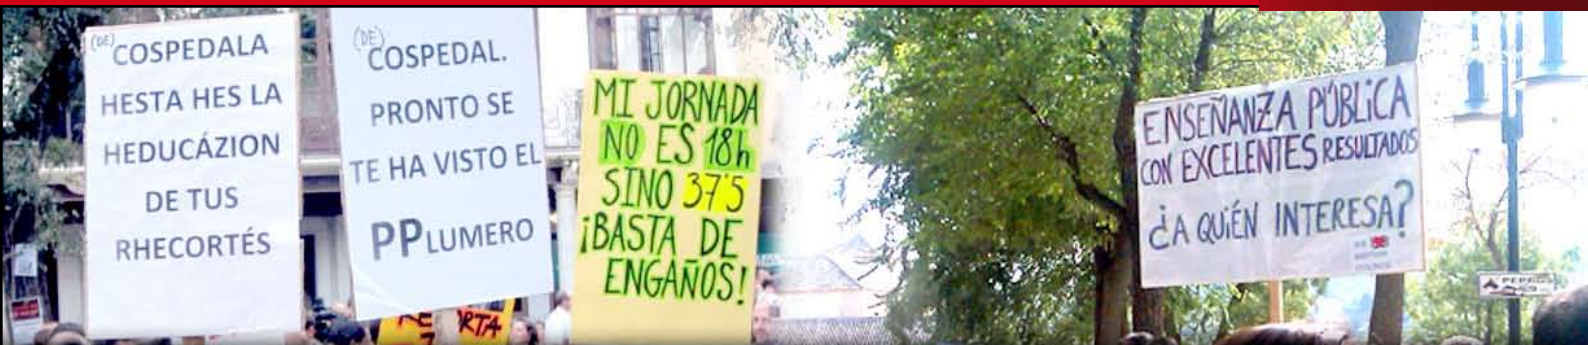 (DE)COSPEDALA
HESTA HES LA
HEDUCÁZION
DE TUS
RHECORTÉS
(DE)COSPEDAL.
PRONTO SE
TE HA VISTO EL
PPLUMERO
MI JORNADA
NO ES 18h
SINO 37'5
¡BASTA DE
ENGAÑOS!
ENSEÑANZA PÚBLICA
CON EXCELENTES RESULTADOS
¿A QUIÉN INTERESA?